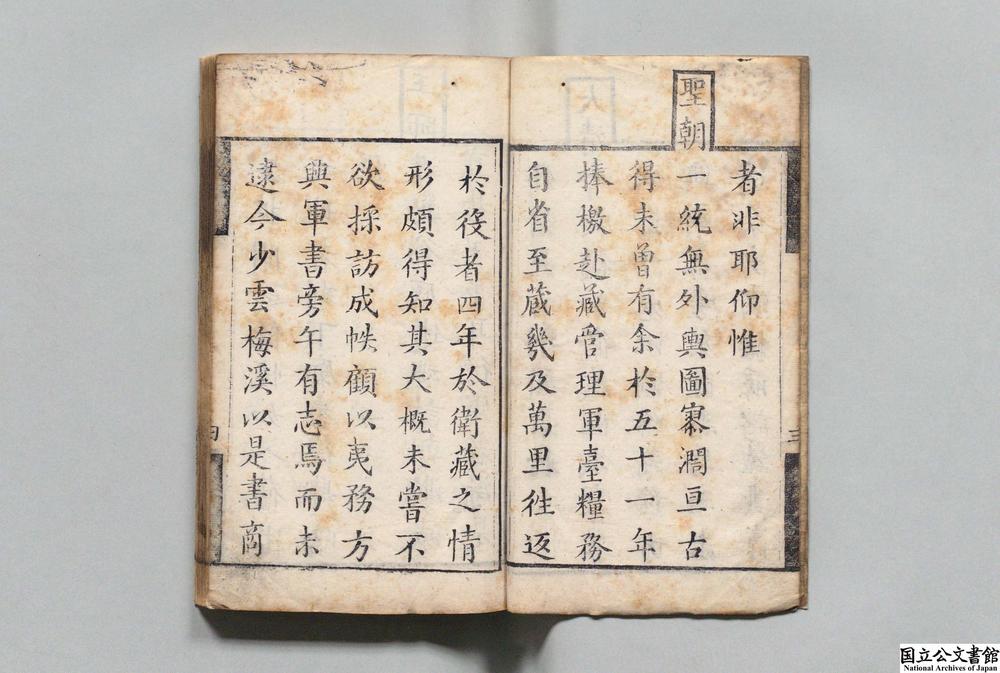 者非耶仰惟
聖朝
一統無外輿圖寥濶亘古
得未曾有余於五十一年
捧檄赴藏管理軍臺糧務
自省至藏幾及萬里徃返
於役者四年於衛藏之情
形頗得知其大概未嘗不
欲採訪成帙顧以夷務方
興軍書旁午有志焉而未
逮今少雲梅溪以是書商
三
四
国立公文書館
National Archives of Japan